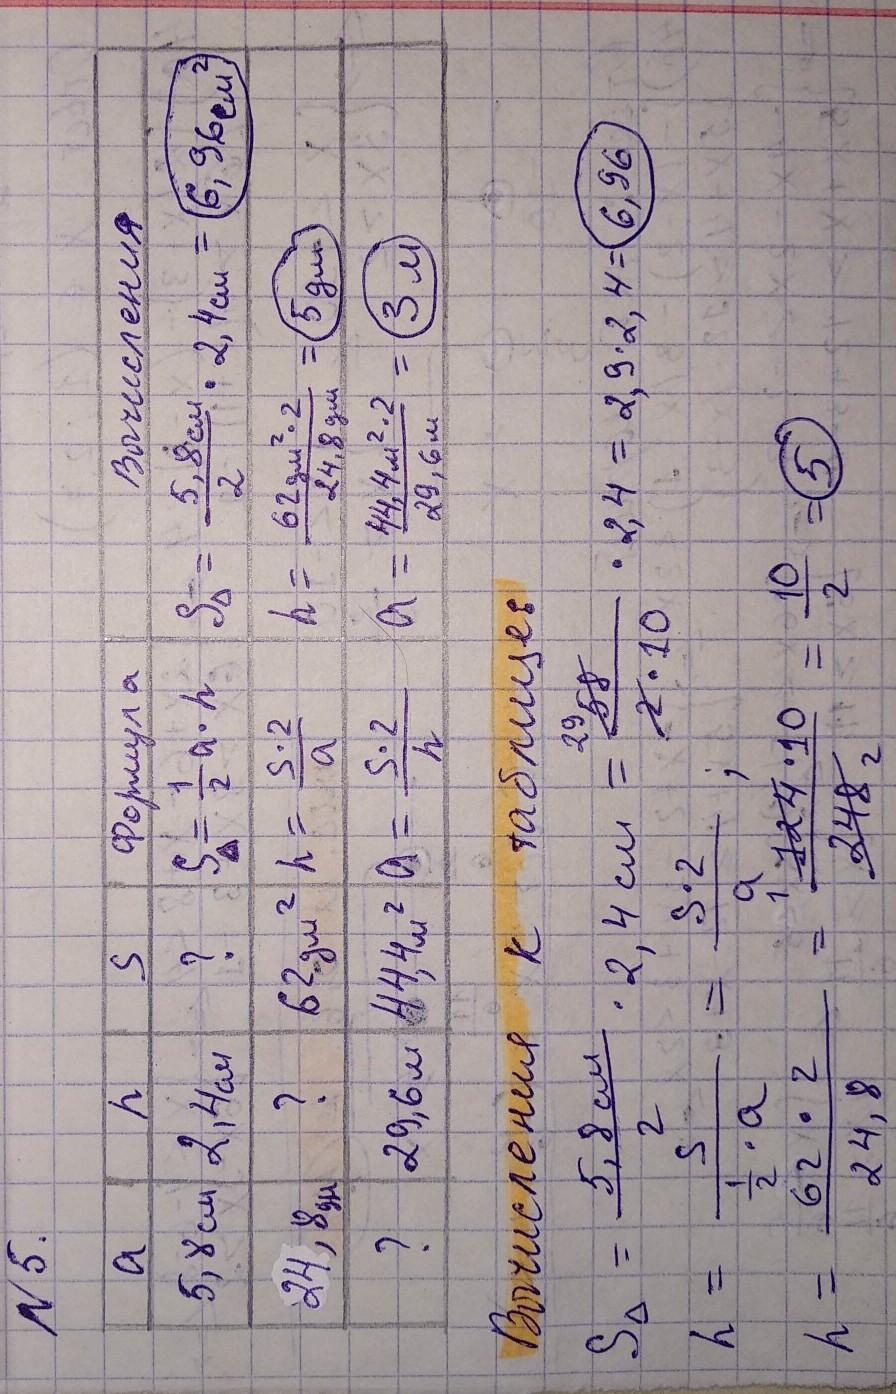 N 5.
a h S Формула Вычисления
5,8см 2,4см ? S△ = 1/2 a · h S△ = 5,8см/2 · 2,4см = 6,96см²
24,8дм ? 62дм² h = S·2/a h = 62дм²·2/24,8дм = 5дм
? 29,6м 44,4м² a = S·2/h a = 44,4м²·2/29,6м = 3м
Вычисления к таблице:
S△ = 5,8см/2 · 2,4см = 29 58/2·10 · 2,4 = 2,9·2,4 = 6,96
h = S/(1/2 · a) = S·2/a ;
h = 62·2/24,8 = 1 124·10/248 2 = 10/2 = 5